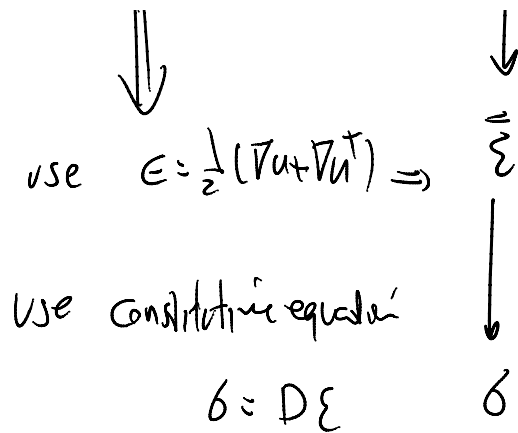 use ϵ = 1/2 (∇u + ∇uᵀ) ⇒ ε̿
use constitutive equation
σ = Dε σ